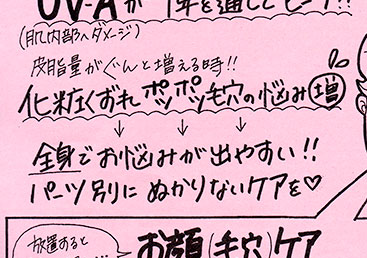 UV-Aが 1年を通してピーク!!
(肌内部へダメージ)
皮脂量がぐんと増える時!!
化粧くずれ ポツポツ毛穴の悩み 増
↓ ↓ ↓
全身でお悩みが出やすい!!
パーツ別に ぬかりないケアを♡
放置すると
お顔(毛穴)ケア